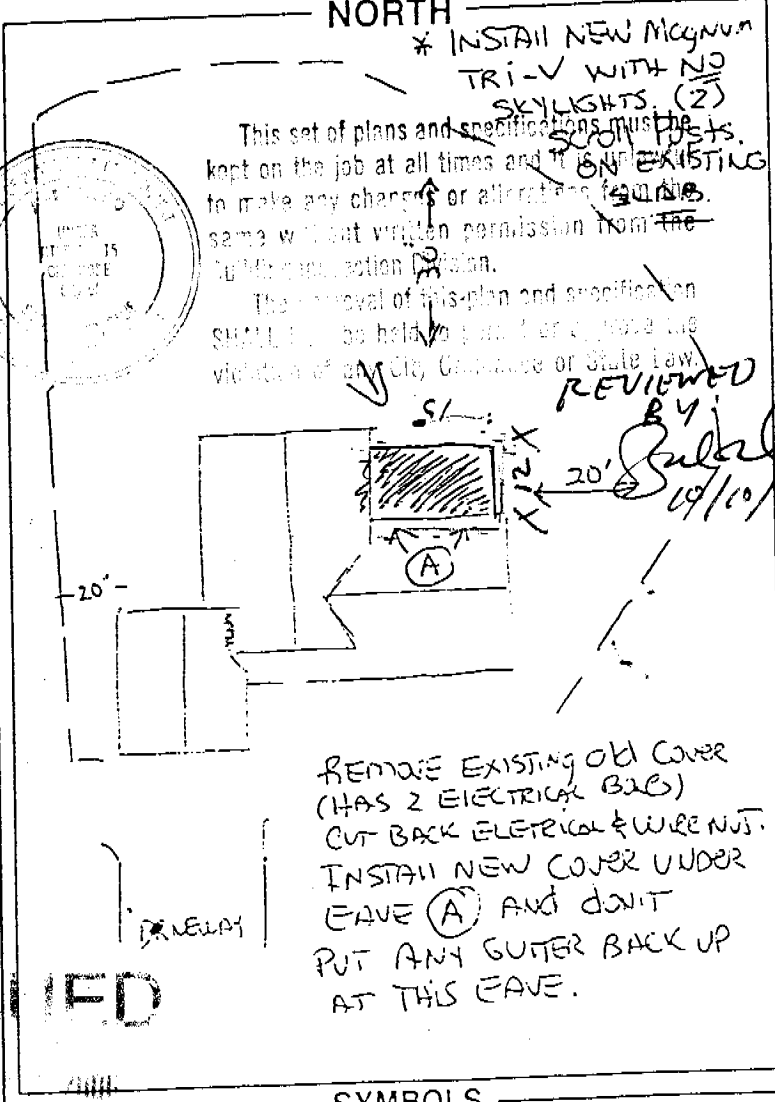 NORTH
* INSTAll NEW MagNum
TRi-V WITH NO
SKYLIGHTS. (2)
SCROll POSTS.
ON EXISTING
SLAB.
This set of plans and specifications must be
kept on the job at all times and it is unlawful
to make any changes or alterations from the
same without written permission from the
Building Inspection Division.
The approval of this plan and specification
SHALL NOT be held to permit or approve the
violation of any City Ordinance or State Law.
REVIEWED
BY:
10/10/
15
X 12 X
20'
A
20'
REMOVE EXISTING Old COVER
(HAS 2 ElECTRICAL
CUT BACK ELETRICAL & WIRE NUT.
INSTAll NEW COVER UNDER
EAVE (A) ANd dON'T
PUT ANY GUTTER BACK UP
AT THIS EAVE.
DRIVEWAY
SYMBOLS